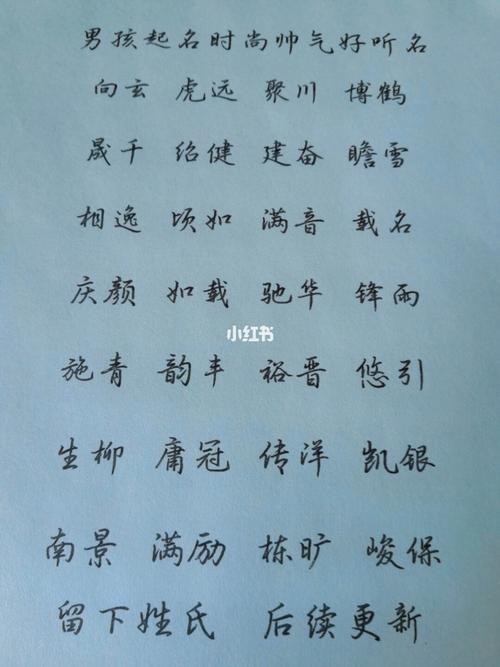 男孩起名时尚帅气好听名
向玄 虎远 聚川 博鹤
晟千 绍健 建奋 瞻雪
相逸 顷如 满音 载名
庆颜 如载 驰华 锋雨
小红书
施青 韵丰 裕晋 悠引
生柳 庸冠 传洋 凯银
南景 满励 栋旷 峻保
留下姓氏 后续更新